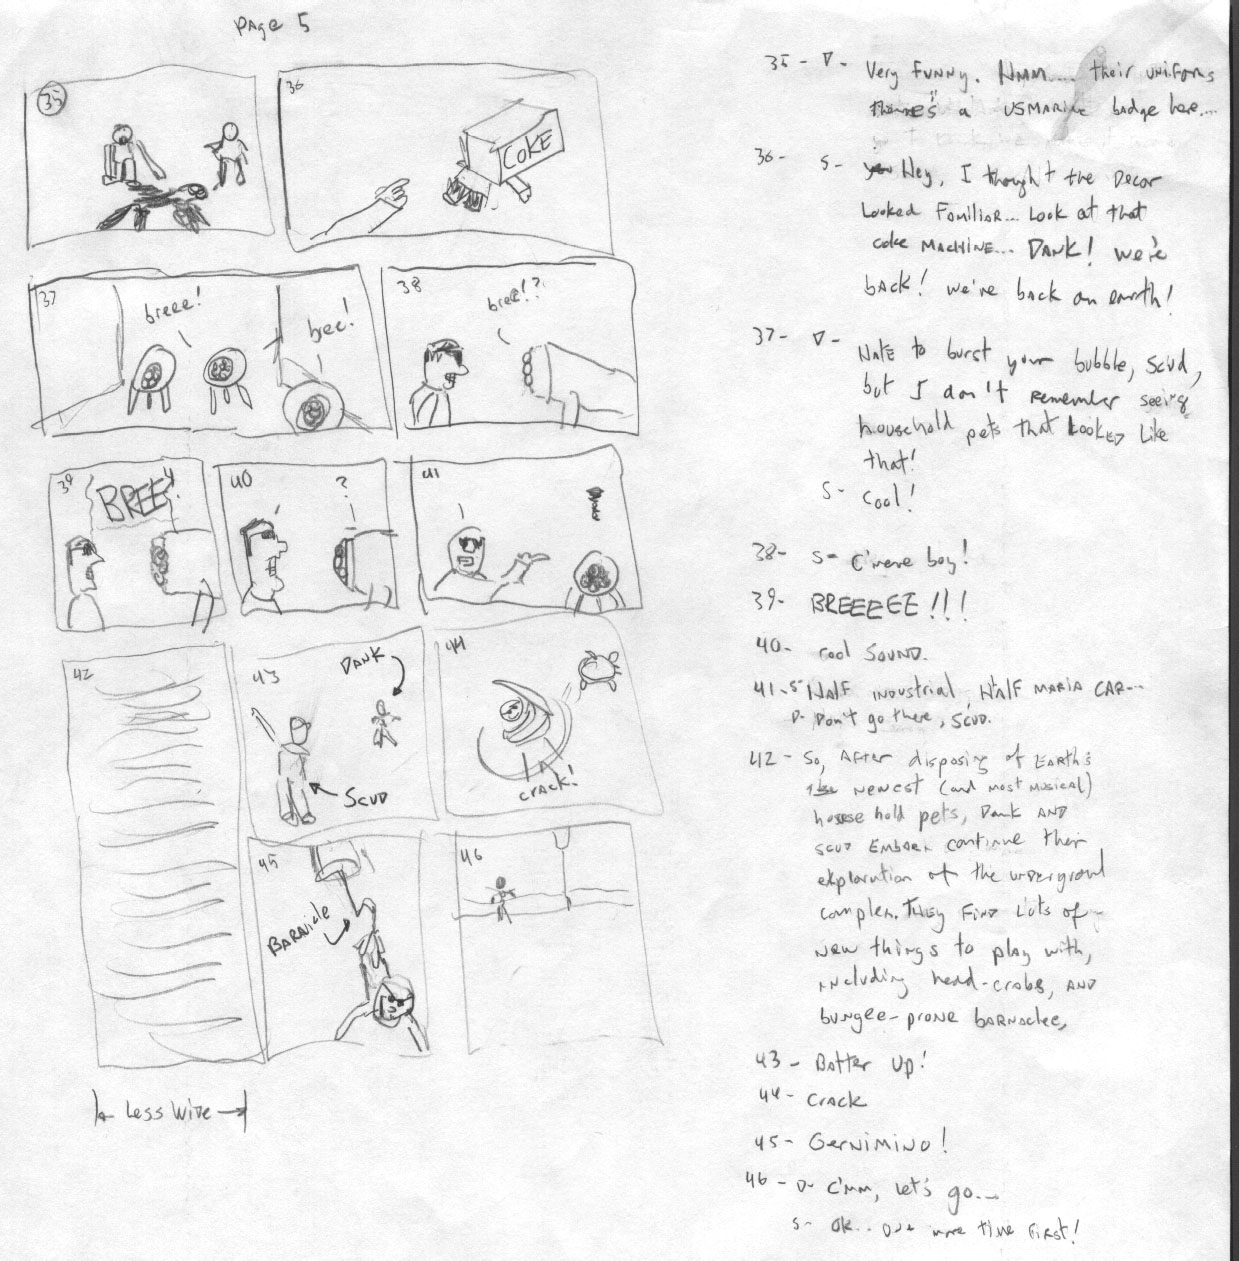 Page 5
35
36
COKE
37
breee!
bree!
38
bree!?
39
BREE!
40
?
41
42
43
DANK
SCUD
44
CRACK!
45
BARNICLE
46
Less wide
35- D- Very Funny. HMM.... their uniforms
there's a USMARINE badge here....
36- S- Hey, I thought the Decor
Looked Familiar... Look at that
coke MACHINE... DANK! we're
bAck! we're back on earth!
37- D-
Hate to burst your bubble, Scud,
but I don't remember seeing
household pets that Looked Like
that!
S- Cool!
38- S- C'mere boy!
39- BREEEEE!!!
40- cool SOUND.
41- S- Half industrial, Half MARIA CAR...
D- Don't go there, Scud.
42- So, After disposing of EARTH's
newest (and most musical)
house hold pets, Dank AND
scud continue their
exploration of the underground
complex. They Find Lots of
New things to play with,
including head-crabs, AND
bungee-prone bARNACLEs,
43- Batter Up!
44- Crack
45- GerNIMINO!
46- D- C'mm, Let's go...
S- OK... One more time First!